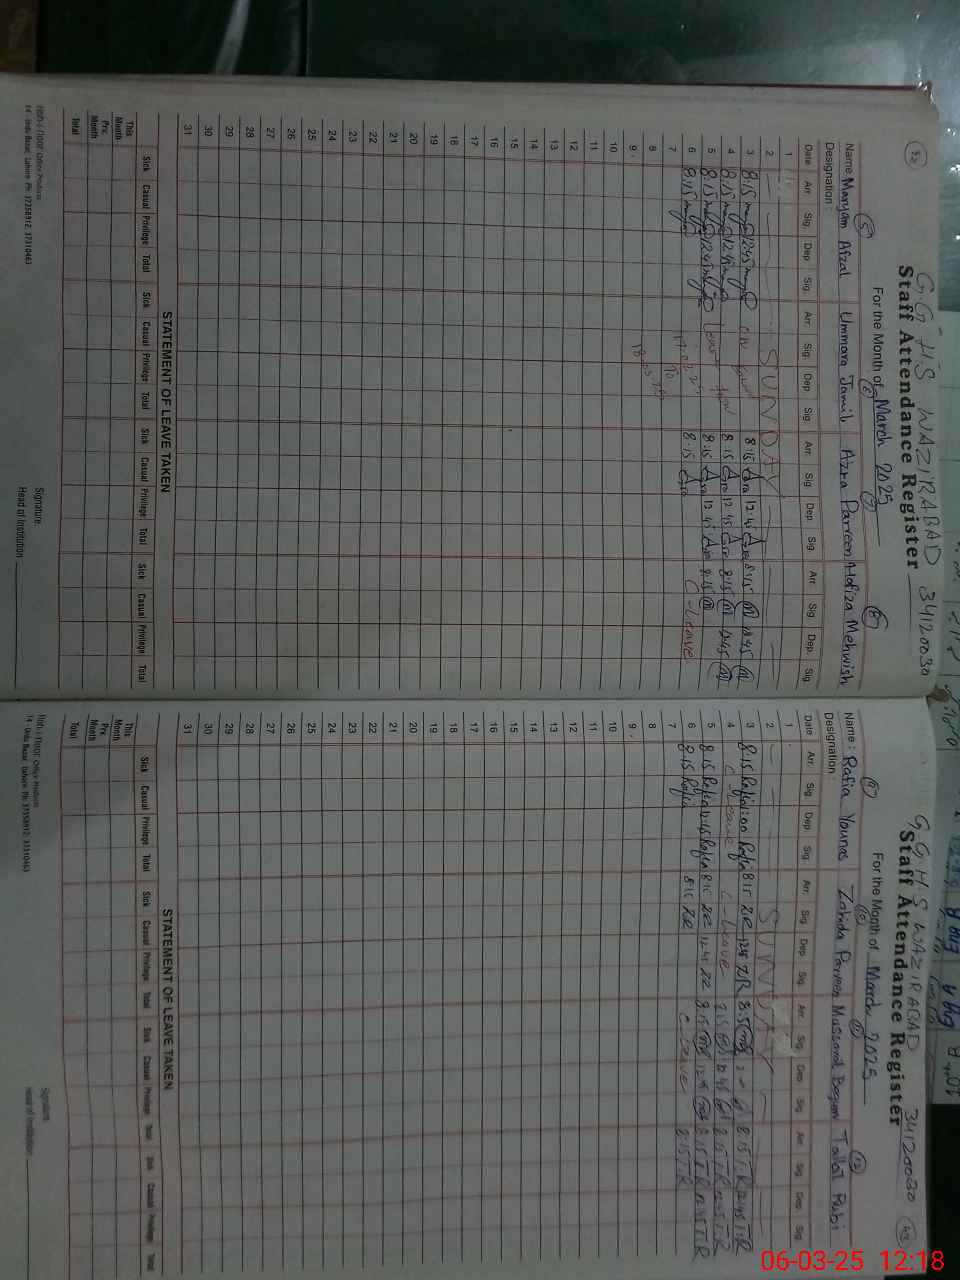 42
G.G.H.S WAZIRABAD 34120030
Staff Attendance Register
For the Month of March 2025
5 6 7 8
Name Maryam Afzal Ummara Jamil Azra Parveen Hafiza Mehwish
Designation:
Date Arr. Sig. Dep. Sig. Arr. Sig. Dep. Sig. Arr. Sig. Dep. Sig. Arr. Sig. Dep. Sig.
1
2 SUNDAY
3 8:15 12:45 8:15 Azra 12:45 Azra 8:15 12:45
4 8:15 12:45 8:15 Azra 12:45 Azra 8:15 12:45
5 8:15 12:45 8:15 Azra 12:45 Azra 8:15
6 8:15 8:15 Azra C-Leave
7
8
9
10
11
12
13
14
15
16
17
18
19
20
21
22
23
24
25
26
27
28
29
30
31
STATEMENT OF LEAVE TAKEN
Sick Casual Privilege Total Sick Casual Privilege Total Sick Casual Privilege Total Sick Casual Privilege Total
This Month
Prv. Month
Total
Signature
Head of Institution
14 - Urdu Bazar, Lahore. Ph: 37358912, 37310463
G.G.H.S WAZIRABAD 34120030
43
Staff Attendance Register
For the Month of March 2025
9 10 11 12
Name: Rafia Younas Zahida Parveen Mussarat Begum Tallat Rubi
Designation:
Date Arr. Sig. Dep. Sig. Arr. Sig. Dep. Sig. Arr. Sig. Dep. Sig. Arr. Sig. Dep. Sig.
1
2 SUNDAY
3 8:15 Rafia 1:00 Rafia 8:15 ZR 12:45 ZR 8:15 8:15 T.R 12:45 T.R
4 C-Leave C-Leave 8:15 12:45 8:15 T.R 12:45 T.R
5 8:15 Rafia 12:45 Rafia 8:15 ZR 12:45 ZR 8:15 12:45 8:15 T.R 12:45 T.R
6 8:15 Rafia 8:15 ZR C-Leave 8:15 T.R
7
8
9
10
11
12
13
14
15
16
17
18
19
20
21
22
23
24
25
26
27
28
29
30
31
STATEMENT OF LEAVE TAKEN
Sick Casual Privilege Total Sick Casual Privilege Total Sick Casual Privilege Total Sick Casual Privilege Total
This Month
Prv. Month
Total
Signature
Head of Institution
14 - Urdu Bazar, Lahore. Ph: 37358912, 37310463
06-03-25 12:18